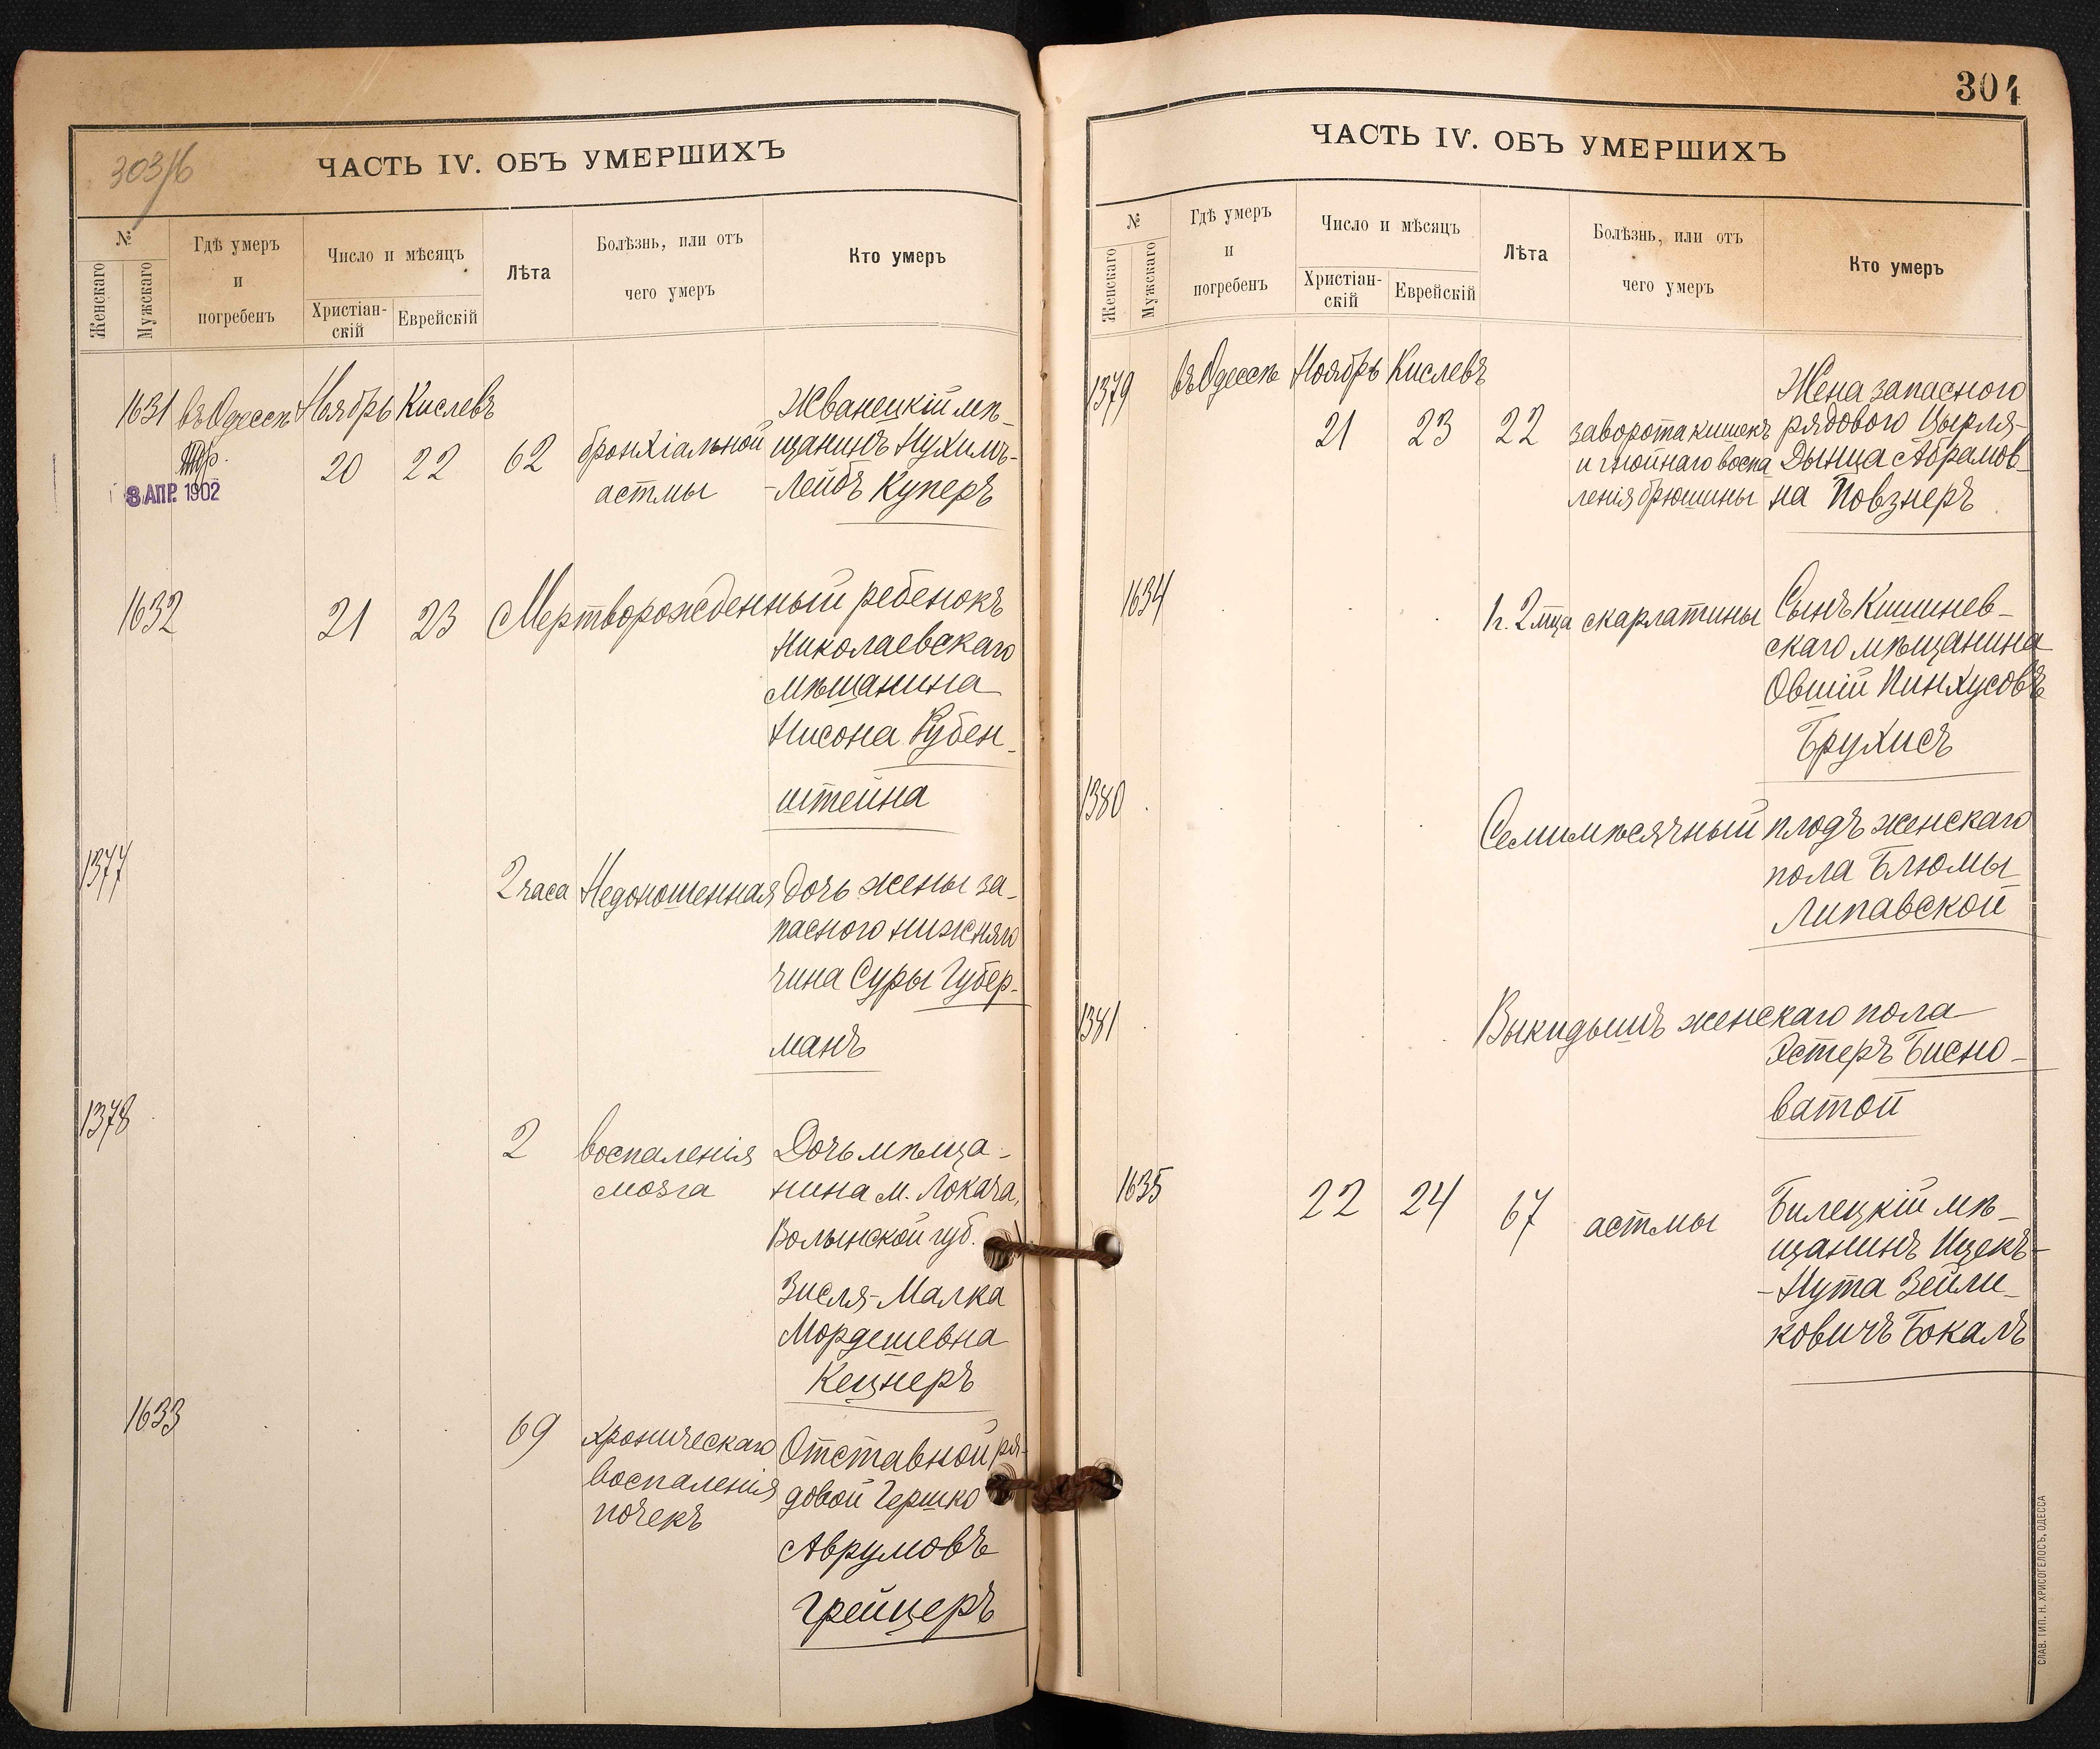 303/6
ЧАСТЬ IV. ОБЪ УМЕРШИХЪ
№
Женскаго
Мужскаго
Гдѣ умеръ
и
погребенъ
Число и мѣсяцъ
Христіан-
скій
Еврейскій
Лѣта
Болѣзнь, или отъ
чего умеръ
Кто умеръ
1631 въ Одессѣ Ноябрь Кислевъ Жванецкій мѣ-
20 22 62 бронхіальной щанинъ Нухимъ-
астмы -Лейбъ Куперъ
8 АПР. 1902
1632 21 23 Мертворожденный ребенокъ
Николаевскаго
мѣщанина
Нисона Рубен-
штейна
1377 2 часа Недоношенная дочь жены за-
паснаго нижняго
чина Суры Губер-
манъ
1378 2 воспаленія Дочь мѣща-
мозга нина м. Локача,
Волынской губ.
Зисля-Малка
Мордешевна
Кецнеръ
1633 69 хроническаго Отставной ря-
воспаленія довой Гершко
почекъ Аврумовъ
Грейцеръ
304
ЧАСТЬ IV. ОБЪ УМЕРШИХЪ
№
Женскаго
Мужскаго
Гдѣ умеръ
и
погребенъ
Число и мѣсяцъ
Христіан-
скій
Еврейскій
Лѣта
Болѣзнь, или отъ
чего умеръ
Кто умеръ
1379 въ Одессѣ Ноябрь Кислевъ Жена запасного
21 23 22 заворота кишекъ рядового Цырля-
и гнойнаго воспа Дынца Абрамов-
ленія брюшины на Повзнеръ
1634 1 г. 2 мца скарлатины Сынъ Кишинев-
скаго мѣщанина
Овшій Пинхусовъ
Брухисъ
1380 Семимѣсячный плодъ женскаго
пола Блюмы
Липавской
1381 Выкидышъ женскаго пола
Эстеръ Бисно-
ватой
1635 22 24 67 астмы Билецкій мѣ-
щанинъ Ицекъ-
-Нута Зейли-
ковичъ Бокалъ
СЛАВ. ТИП. Н. ХРИСОГЕЛОСЪ, ОДЕССА